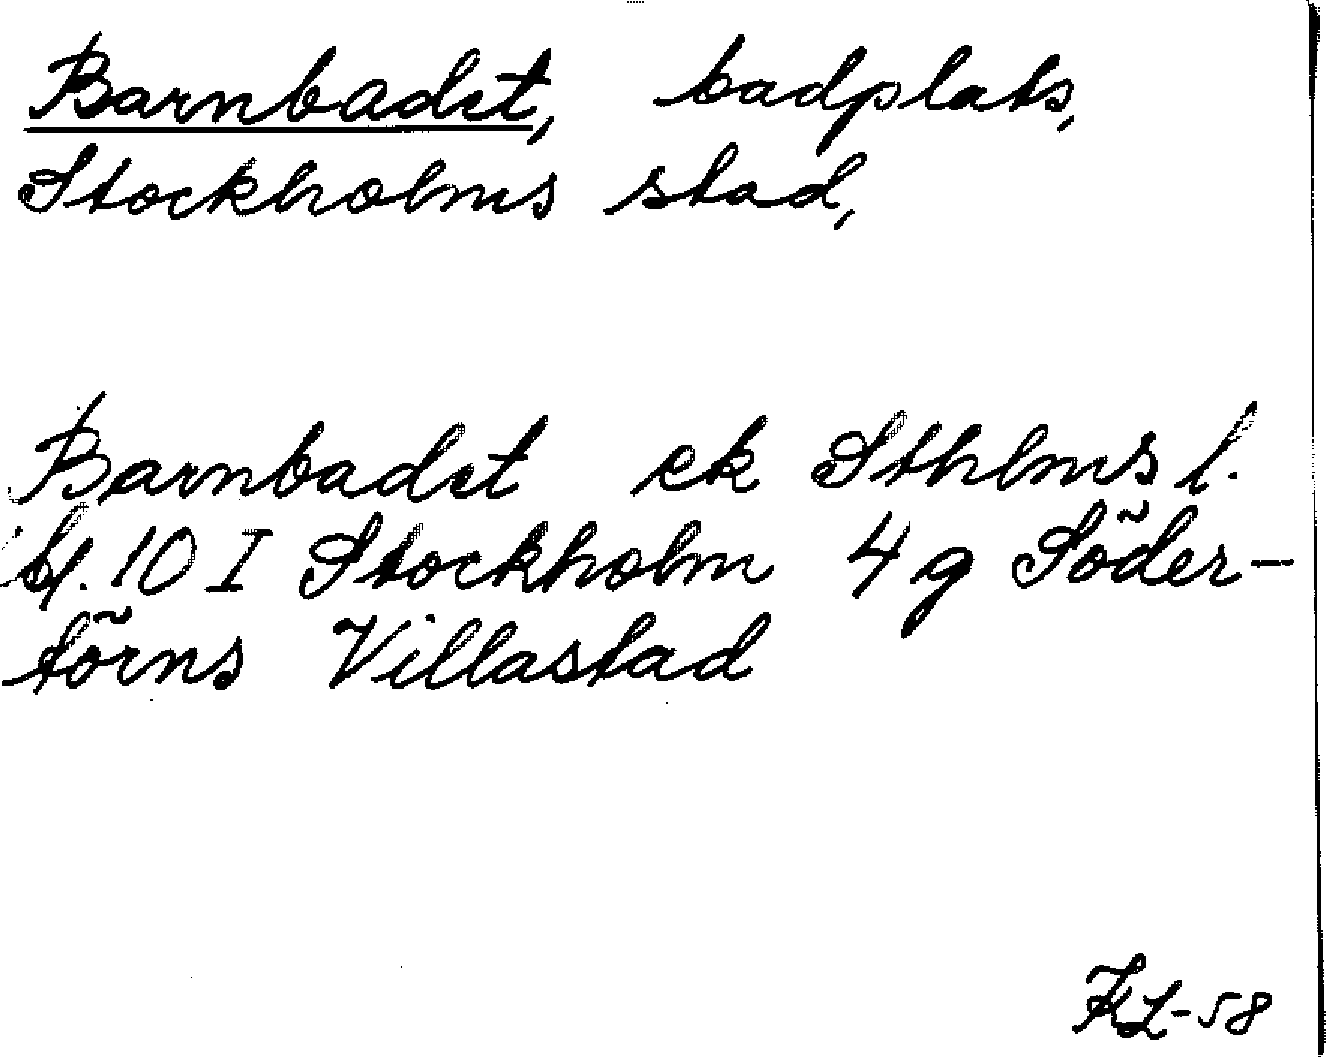 Barnbadet, badplats,
Stockholms stad,
Barnbadet ek Sthlms l.
bl. 10 I Stockholm 4 g Söder-
törns Villastad
KL-58